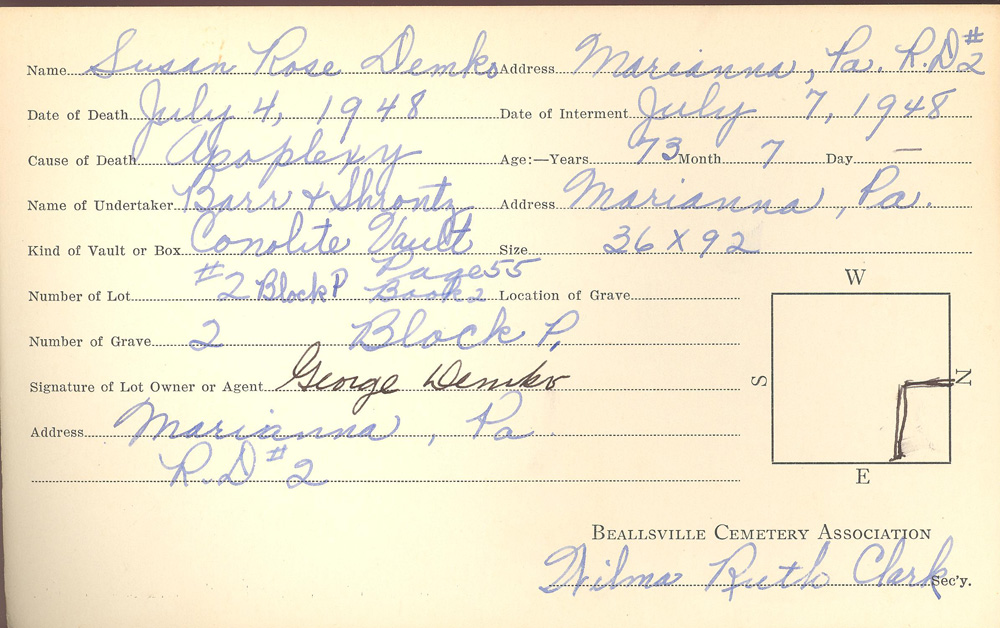 Name Susan Rose Demko Address Marianna, Pa. R.D.#2
Date of Death July 4, 1948 Date of Interment July 7, 1948
Cause of Death Apoplexy Age:—Years 73 Month 7 Day —
Name of Undertaker Barr & Shrontz Address Marianna, Pa.
Kind of Vault or Box Conolite Vault Size 36 X 92
Page 55
Number of Lot #2 Block P Book 2 Location of Grave
Number of Grave 2 Block P,
Signature of Lot Owner or Agent George Demko
Address Marianna, Pa.
R.D #2
W
S
N
E
Beallsville Cemetery Association
Wilma Ruth Clark Sec'y.